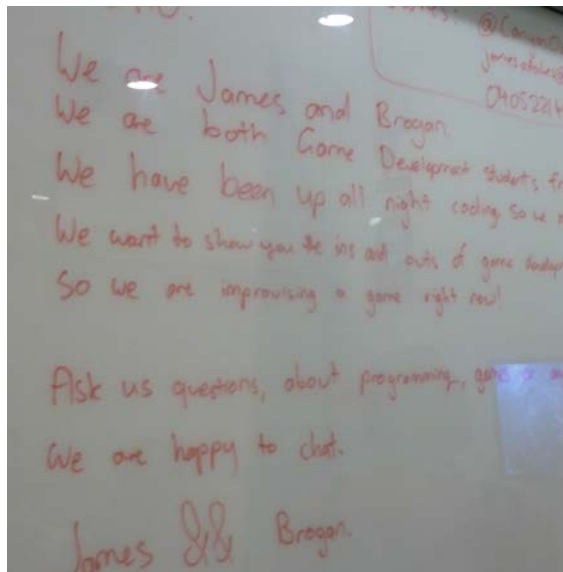 @Canon
James
04052214
We are James and Brogan.
We are both Game Development students
We have been up all night coding so we
We want to show you the ins and outs of game
So we are improvising a game right now!
Ask us questions, about programming, games or
We are happy to chat.
James && Brogan.